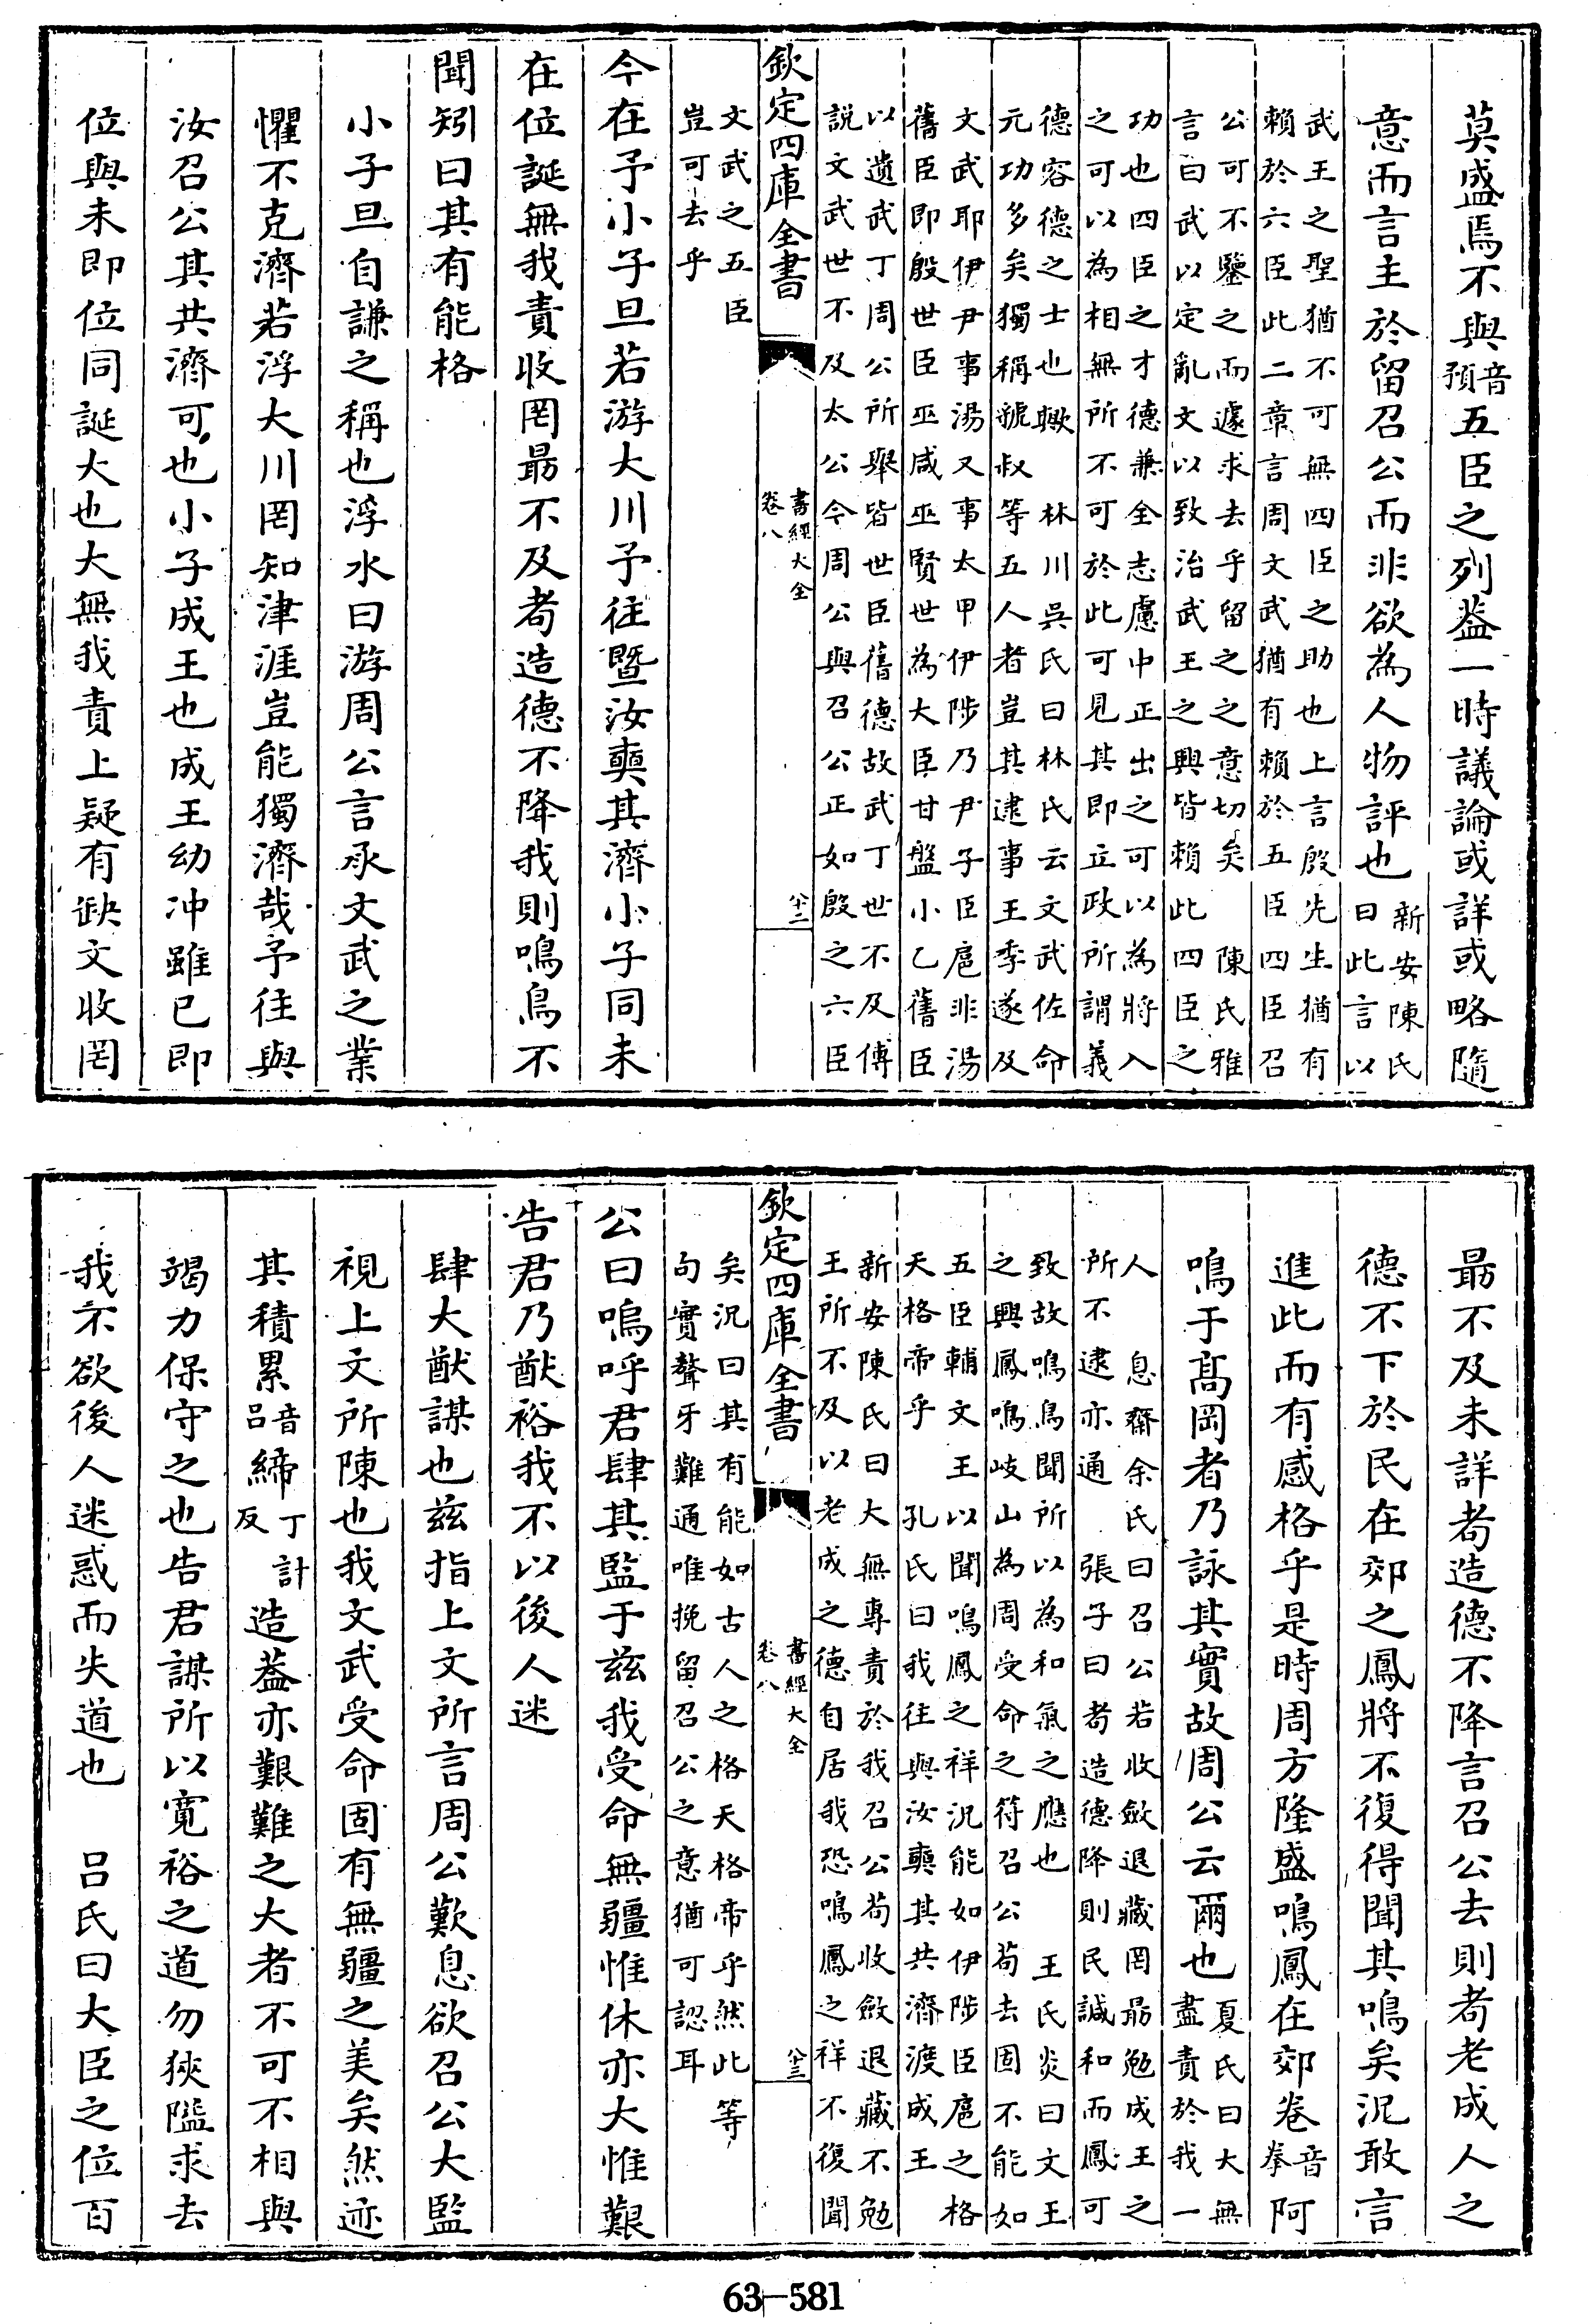 莫盛焉不與音預五臣之列蓋一時議論或詳或略隨
意而言主於留召公而非欲為人物評也新安陳氏
曰此言以
武王之聖猶不可無四臣之助也上言殷先生猶有
賴於六臣此二章言周文武猶有賴於五臣四臣召
公可不鑒之而遽求去乎留之之意切矣 陳氏雅
言曰武以定亂文以致治武王之興皆賴此四臣之
功也四臣之才德兼全志慮中正出之可以為將入
之可以為相無所不可於此可見其即立政所謂義
德容德之士也歟 林川吳氏曰林氏云文武佐命
元功多矣獨稱虢叔等五人者豈其逮事王季遂及
文武耶伊尹事湯又事太甲伊陟乃尹子臣扈非湯
舊臣即殷世臣巫咸巫賢世為大臣甘盤小乙舊臣
以遺武丁周公所舉皆世臣舊德故武丁世不及傅
説文武世不及太公今周公與召公正如殷之六臣
欽定四庫全書
書經大全
卷八
八十二
文武之五臣
豈可去乎
今在予小子旦若游大川予往暨汝奭其濟小子同未
在位誕無我責收罔勗不及耇造德不降我則鳴鳥不
聞矧曰其有能格
小子旦自謙之稱也浮水曰游周公言承文武之業
懼不克濟若浮大川罔知津涯豈能獨濟哉予往與
汝召公其共濟可也小子成王也成王幼冲雖已即
位與未即位同誕大也大無我責上疑有缺文收罔
勗不及未詳耇造德不降言召公去則耇老成人之
德不下於民在郊之鳳將不復得聞其鳴矣況敢言
進此而有感格乎是時周方隆盛鳴鳳在郊卷音拳阿
鳴于高岡者乃詠其實故周公云爾也夏氏曰大無
盡責於我一
人 息齋余氏曰召公若收斂退藏罔勗勉成王之
所不逮亦通 張子曰耇造德降則民諴和而鳳可
致故鳴鳥聞所以為和氣之應也 王氏炎曰文王
之興鳳鳴岐山為周受命之符召公苟去固不能如
五臣輔文王以聞鳴鳳之祥況能如伊陟臣扈之格
天格帝乎 孔氏曰我往與汝奭其共濟渡成王
新安陳氏曰大無專責於我召公苟收斂退藏不勉
王所不及以老成之德自居我恐鳴鳳之祥不復聞
欽定四庫全書
書經大全
卷八
八十三
矣況曰其有能如古人之格天格帝乎然此等
句實聱牙難通唯挽留召公之意猶可認耳
公曰嗚呼君肆其監于兹我受命無疆惟休亦大惟艱
告君乃猷裕我不以後人迷
肆大猷謀也兹指上文所言周公歎息欲召公大監
視上文所陳也我文武受命固有無疆之美矣然迹
其積累音呂締丁計反造蓋亦艱難之大者不可不相與
竭力保守之也告君謀所以寬裕之道勿狹隘求去
我不欲後人迷惑而失道也 呂氏曰大臣之位百
63-581